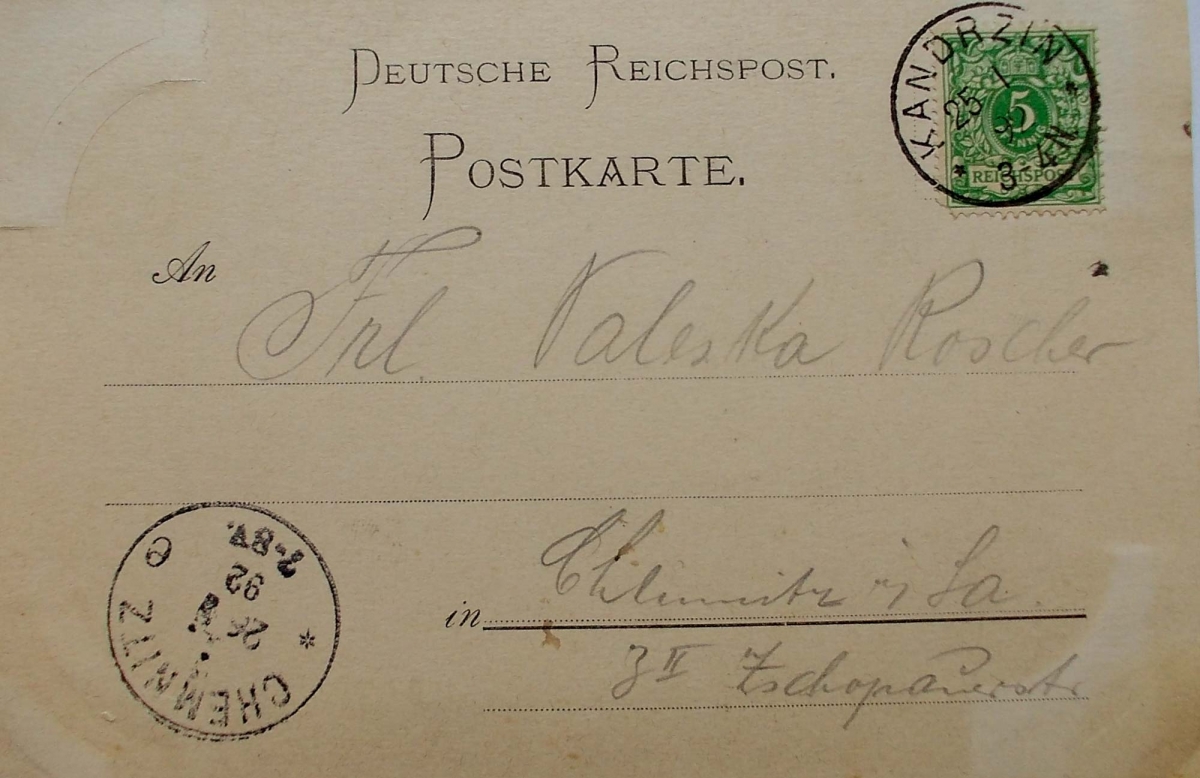 DEUTSCHE REICHSPOST.
POSTKARTE.
KANDRZIN
25 1
92
3-4N
5
REICHSPOST
An Frl. Valeska Roscher
in Chemnitz i/Sa.
3 II Zschopauerstr
CHEMNITZ
26 1
92
7-8V.